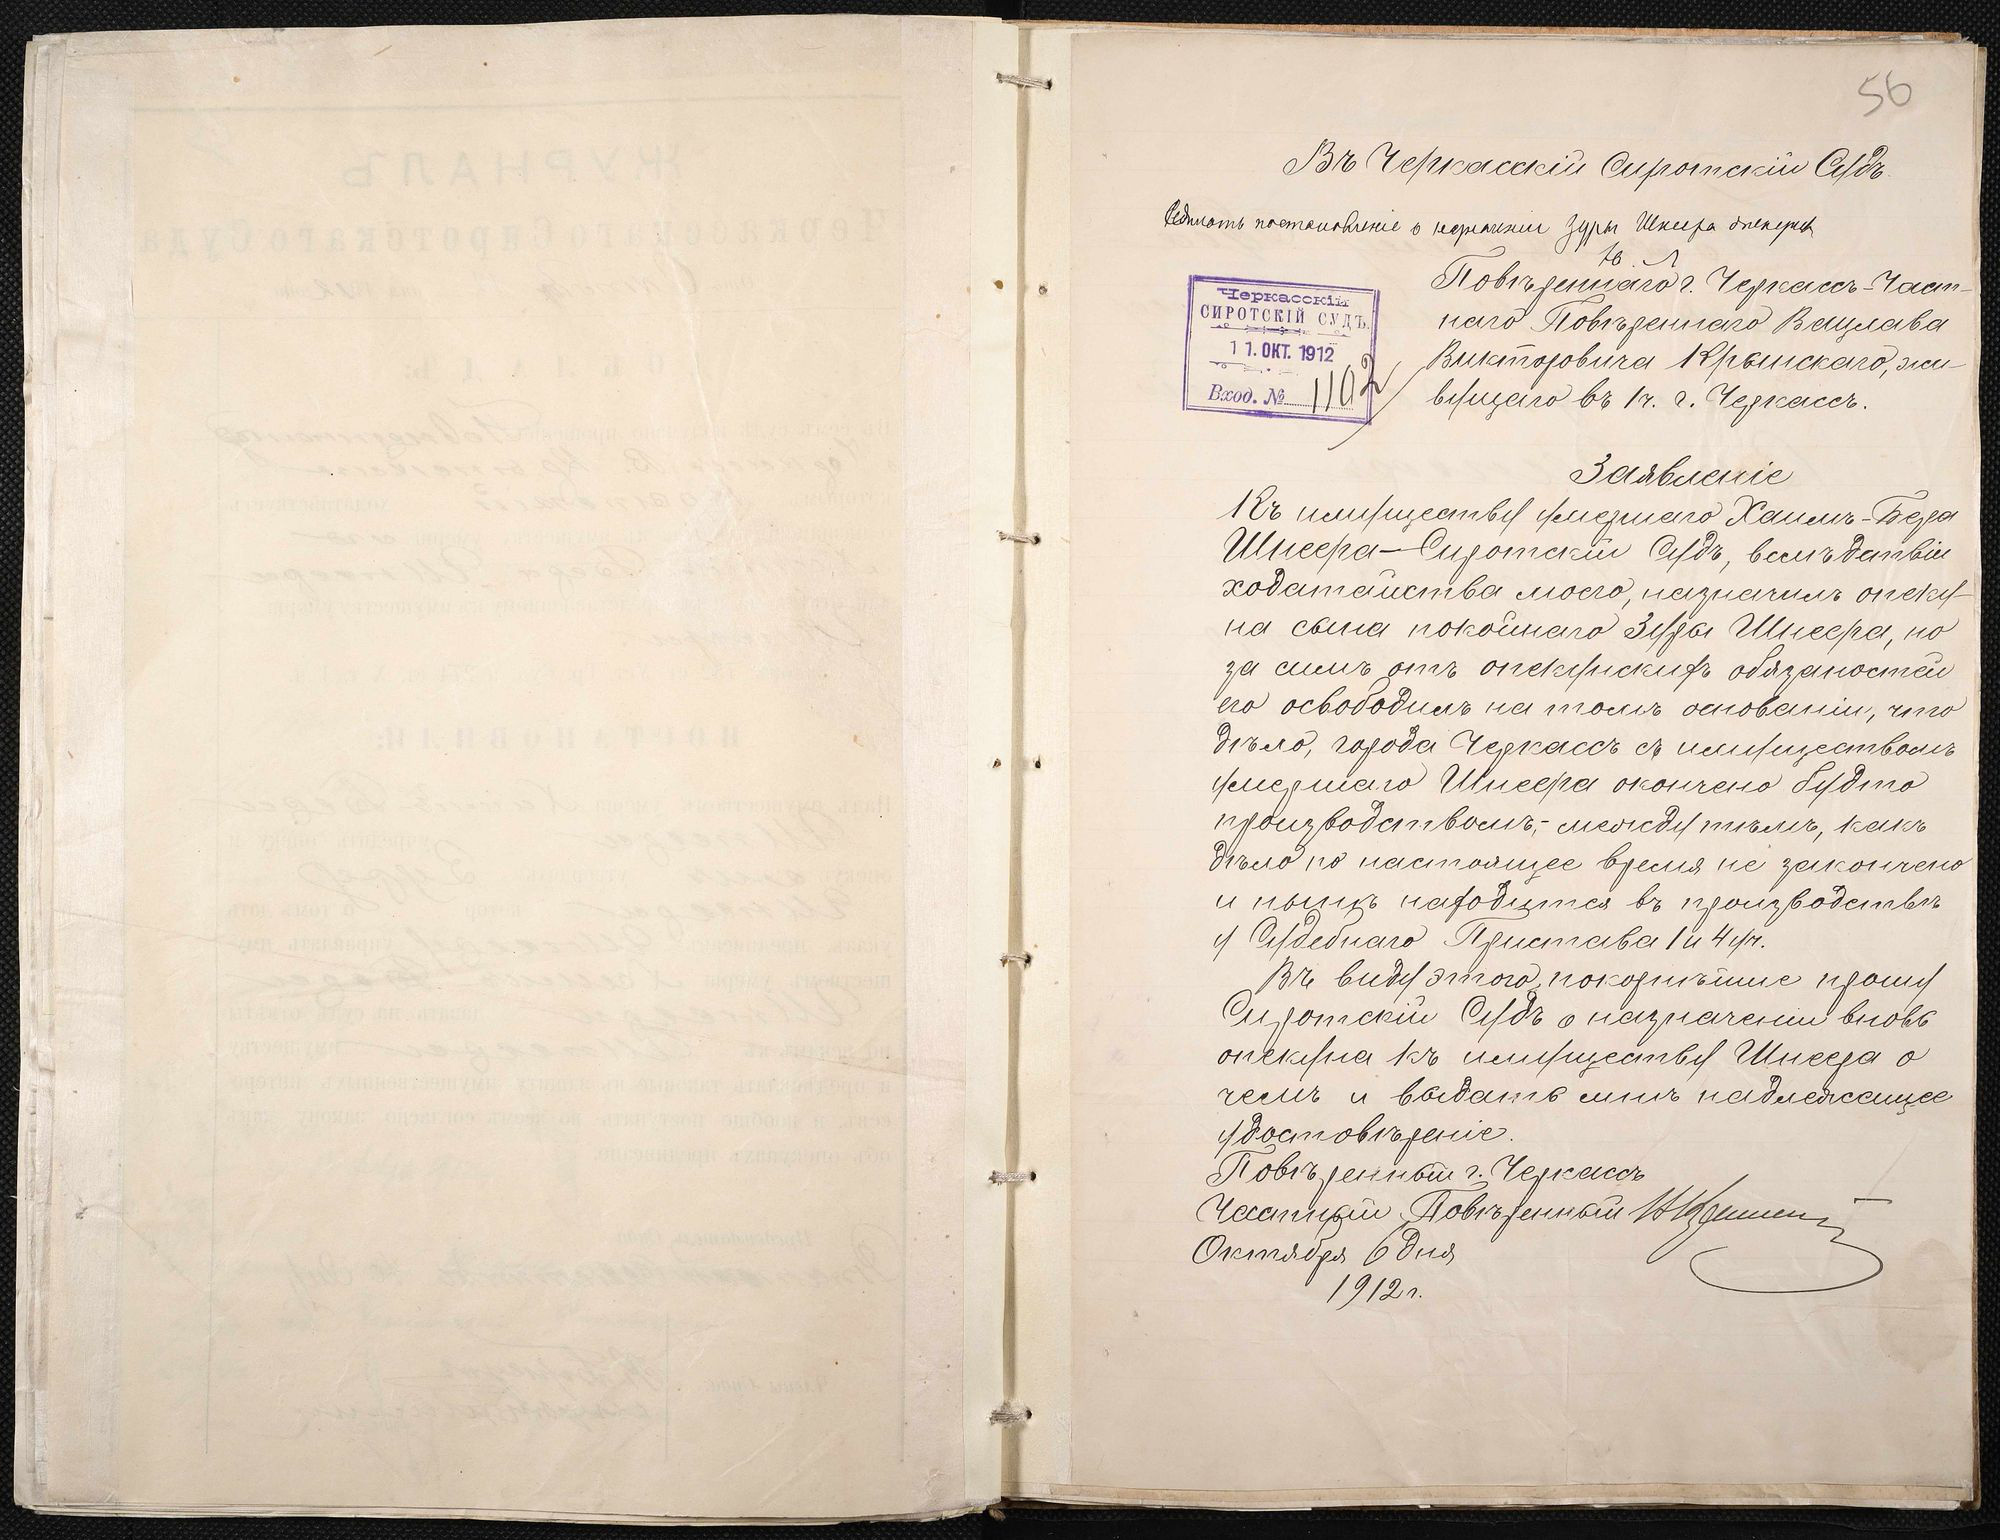 56
Въ Черкасскій Сиротскій Судъ.
постановленіе о назначеніи Зуры Шнеера
Повѣреннаго г. Черкассъ-Част-
наго Повѣреннаго Вацлава
Викторовича Крынскаго, жи-
вущаго въ 1 ч. г. Черкассъ.
Черкасскій
СИРОТСКІЙ СУДЪ.
11. ОКТ. 1912
Вход. № 1102
Заявленіе
Къ имуществу умершаго Хаимъ-Бера
Шнеера—Сиротскій Судъ, вслѣдствіи
ходатайства моего, назначилъ опеку-
на сына покойнаго Зуры Шнеера, но
за симъ отъ опекунскихъ обязаностей
его освободилъ на томъ основаніи, что
дѣло, города Черкассъ съ имуществомъ
умершаго Шнеера окончено будто
производствомъ,- между тѣмъ, какъ
дѣло по настоящее время не закончено
и нынѣ находится въ производствѣ
у Судебнаго Пристава 1 и 4 уч.
Въ виду этого, покорнѣйше прошу
Сиротскій Судъ о назначении вновь
опекуна къ имуществу Шнеера о
чемъ и выдать мнѣ надлежащее
удостовѣреніе.
Повѣренный г. Черкассъ
Частный Повѣренный
Октября 6 дня
1912 г.